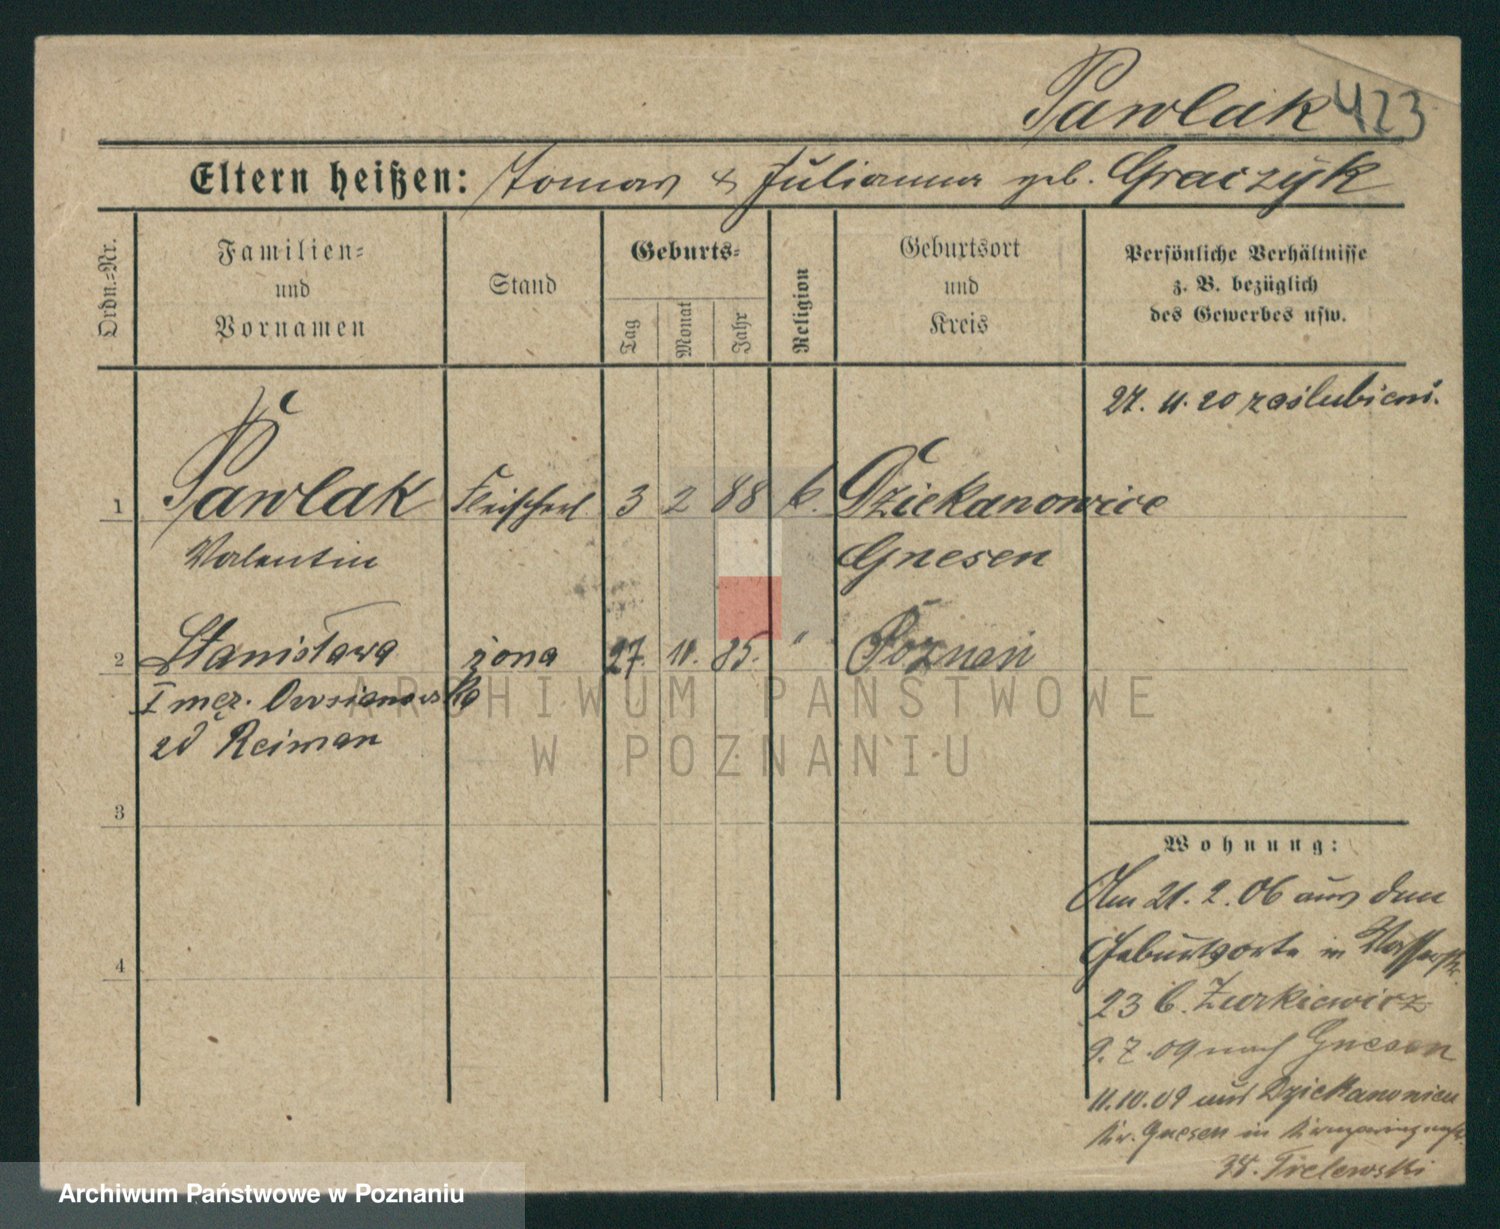 Pawlak 423
Eltern heißen: Tomas & Julianna geb. Graczyk
Ordn.-Nr.
Familien-
und
Vornamen
Stand
Geburts-
Tag
Monat
Jahr
Religion
Geburtsort
und
Kreis
Persönliche Verhältnisse
z. B. bezüglich
des Gewerbes usw.
27. 11. 20 zaślubieni.
1 Pawlak Fleischerl 3 2 88 k. Dziekanowice
Valentin Gnesen
2 Stanisława żona 27. 11. 85. " Poznań
I męż. Owsianowska
2d Reiman
3
4
Wohnung:
Am 21. 2. 06 aus dem
Geburtsorte in Wasserstr.
23 b. Żurkiewicz
9. 7. 09 nach Gnesen
11.10.09 aus Dziekanowice
Kr. Gnesen in
34. Trelewski
ARCHIWUM PAŃSTWOWE
W POZNANIU
Archiwum Państwowe w Poznaniu